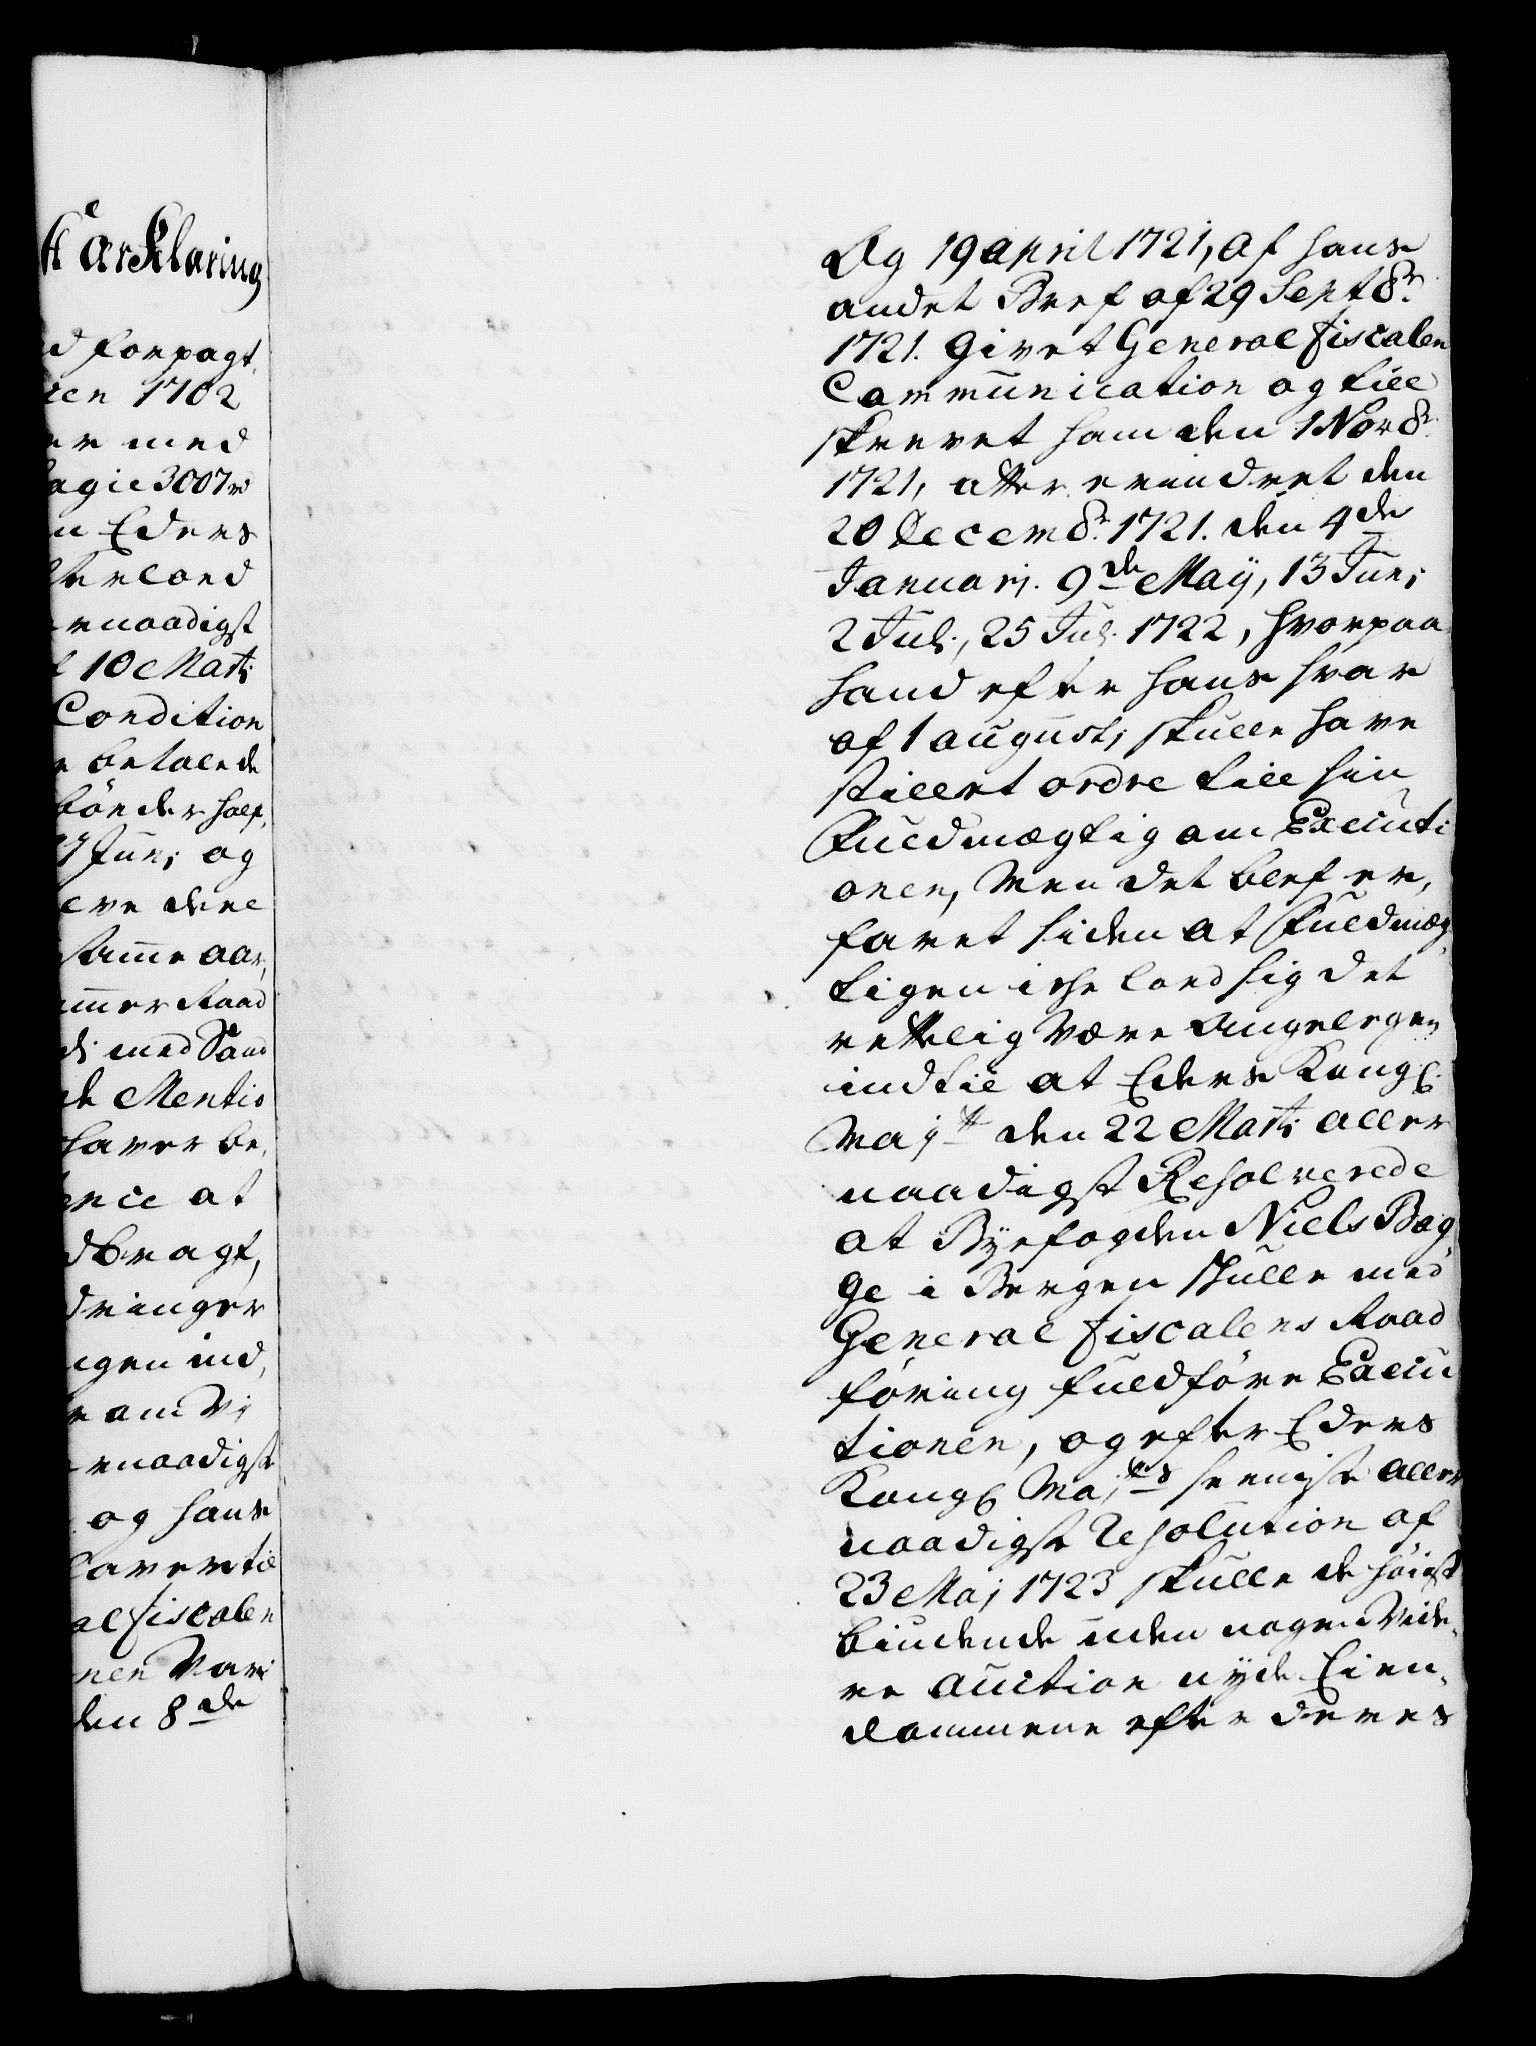 Erklaring
d forpagt,
ren 1702
er med
agie 3007 rd
n Eders
terland
rnaadigst
l 10 Marti
Condition
e betalende
bönder half,
7 Juni og
eve dene
samme aar,
mmer Raad
di med Saad
de Mentio
haver be,
ence at
dbragt,
dringer
ngen ind,
e om Vi
rnaadigst
og hans
Laver til
al fiscalen
nen Var
den 8de
Og 19 april 1721, af hans
andet Bref af 29 Sept8r.
1721. givet General fiscalen
Communication og till
skrevet ham den 1 Nov8r.
1721, atter erindret den
20 Decem8r. 1721. den 4de
Januarj. 9de Maij, 13 Juni
2 Juli, 25 Juli 1722, hvorpaa
hand efter hans svar
af 1 augusti skulle have
stillet ordre till sin
Fuldmægtig om Executi
onen, Men det blef er,
faret siden at Fuldmæg,
tigen iche loed sig det
rettelig være angelegen
indtil at Eders Kongl.
Majtt den 22 Marti aller
naadigst Resolverede
at Byefogden Niels Bag,
ge i Bergen skulle med
General fiscalens Raad
föring fuldföre Execu
tionen, og efter Eders
Kongl Majtts seeniste aller
naadigste Resolution af
23 Maj 1723 skulle de höigst
biudende uden nogen Vide,
re auction nyde Eien,
dommene efter deres